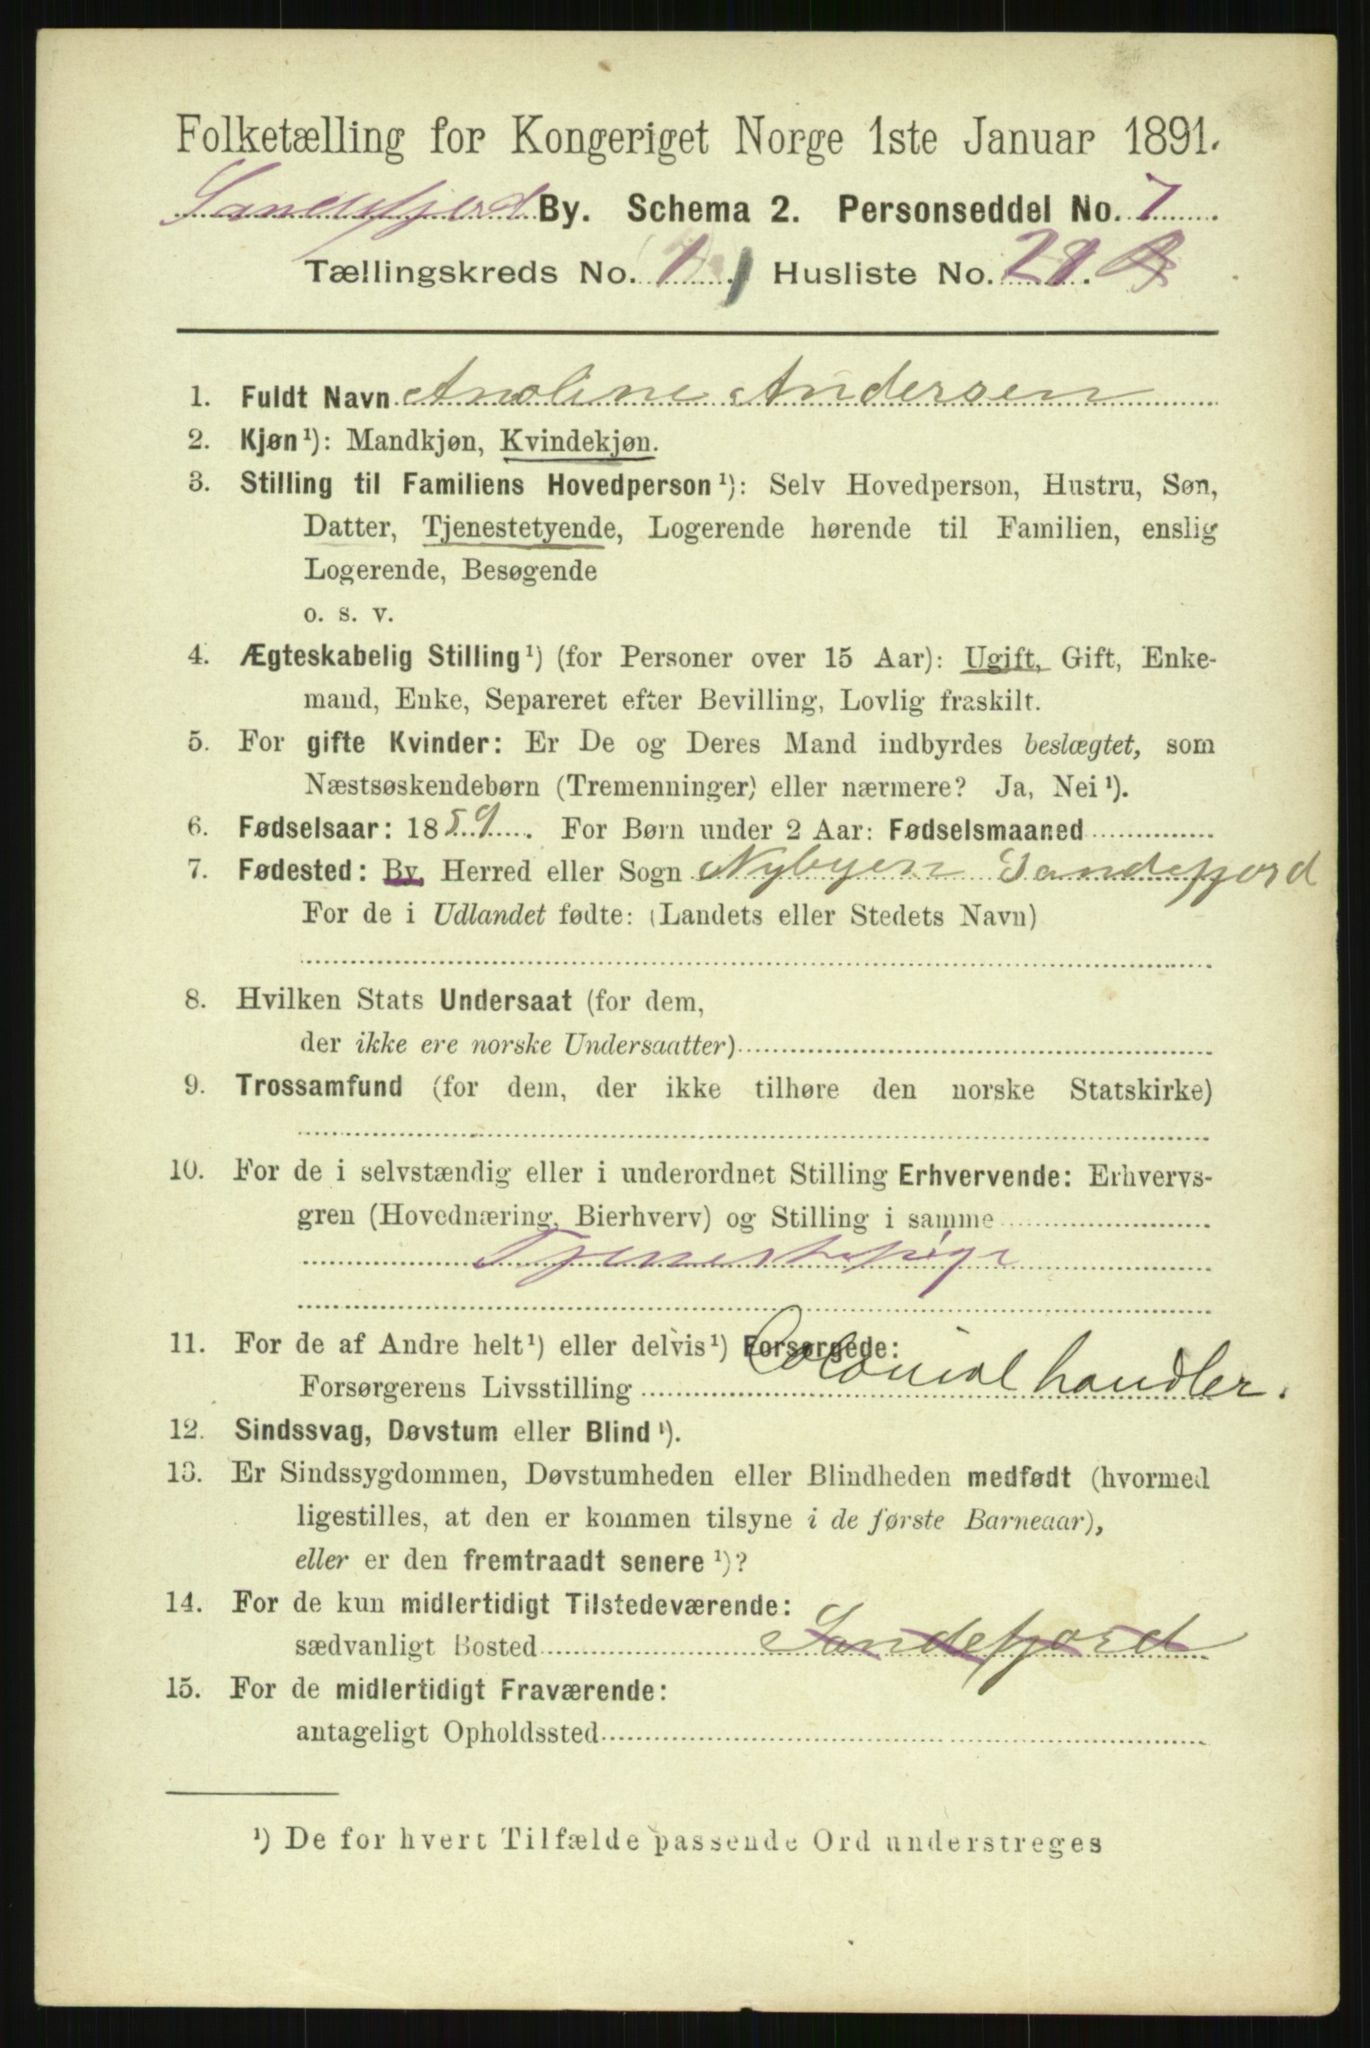 Folketælling for Kongeriget Norge 1ste Januar 1891.
Sandefjord By. Schema 2. Personseddel No. 7
Tællingskreds No. 1 Husliste No. 21.
1. Fuldt Navn Anoline Andersen
2. Kjøn¹): Mandkjøn, Kvindekjøn.
3. Stilling til Familiens Hovedperson¹): Selv Hovedperson, Hustru, Søn,
Datter, Tjenestetyende, Logerende hørende til Familien, enslig
Logerende, Besøgende
o. s. v.
4. Ægteskabelig Stilling¹) (for Personer over 15 Aar): Ugift, Gift, Enke-
mand, Enke, Separeret efter Bevilling, Lovlig fraskilt.
5. For gifte Kvinder: Er De og Deres Mand indbyrdes beslægtet, som
Næstsøskendebørn (Tremenninger) eller nærmere? Ja, Nei¹).
6. Fødselsaar: 1859. For Børn under 2 Aar: Fødselsmaaned
7. Fødested: By, Herred eller Sogn Nybyen Sandefjord
For de i Udlandet fødte: (Landets eller Stedets Navn)
8. Hvilken Stats Undersaat (for dem,
der ikke ere norske Undersaatter)
9. Trossamfund (for dem, der ikke tilhøre den norske Statskirke)
10. For de i selvstændig eller i underordnet Stilling Erhvervende: Erhvervs-
gren (Hovednæring, Bierhverv) og Stilling i samme
Tjenestepige
11. For de af Andre helt¹) eller delvis¹) Forsørgede:
Forsørgerens Livsstilling Colonialhandler.
12. Sindssvag, Døvstum eller Blind¹).
13. Er Sindssygdommen, Døvstumheden eller Blindheden medfødt (hvormed
ligestilles, at den er kommen tilsyne i de første Barneaar),
eller er den fremtraadt senere¹)?
14. For de kun midlertidigt Tilstedeværende:
sædvanligt Bosted Sandefjord
15. For de midlertidigt Fraværende:
antageligt Opholdssted
¹) De for hvert Tilfælde passende Ord understreges